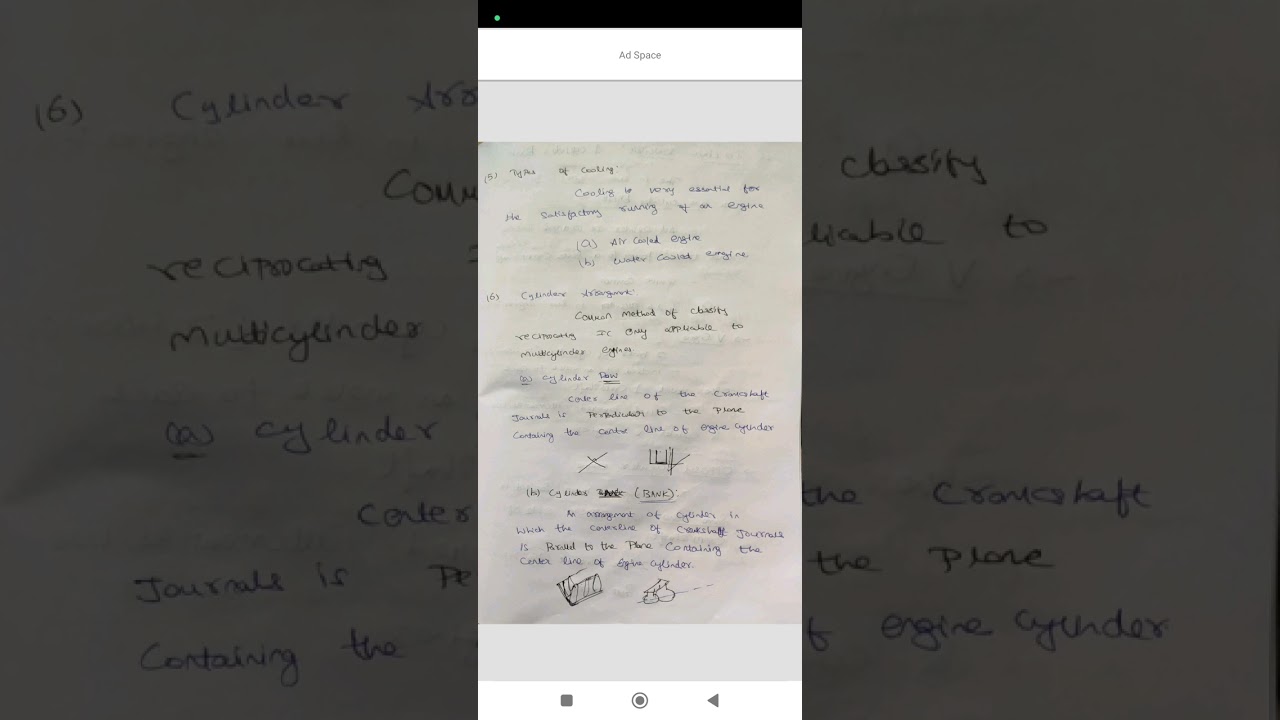 Ad Space
(5) Types of Cooling:
Cooling is very essential for
the satisfactory running of an engine
(a) Air cooled engine
(b) Water cooled engine
(6) Cylinder Arrangement:
Common method of classify
reciprocating IC only appliable to
multicylinder engines
(a) Cylinder Row
Center line of the Crankshaft
Journals is Perpendicular to the Plane
Containing the centre line of engine cylinder
(b) Cylinder (BANK):
An arrangement of cylinder in
which the centerline of Crankshaft Journals
is to the Plane Containing the
Center line of engine cylinder.
(6) Cylinder
classify
reciprocating
to
Multicylinder
(a) Cylinder
Center
the Crankshaft
Journals is
the Plane
Containing the
engine cylinder